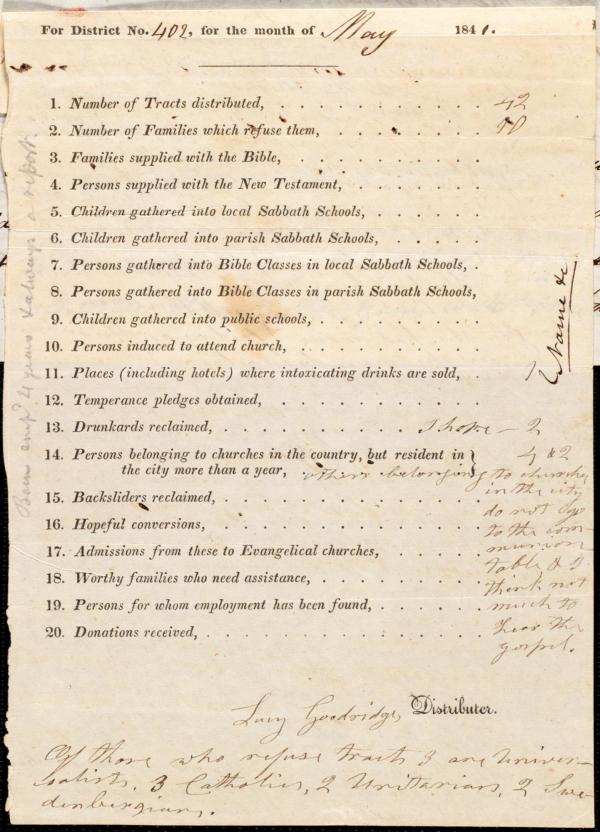 For District No. 402, for the month of May 1841.
1. Number of Tracts distributed, 42
2. Number of Families which refuse them, 10
3. Families supplied with the Bible,
4. Persons supplied with the New Testament,
5. Children gathered into local Sabbath Schools,
6. Children gathered into parish Sabbath Schools,
7. Persons gathered into Bible Classes in local Sabbath Schools,
8. Persons gathered into Bible Classes in parish Sabbath Schools,
9. Children gathered into public schools,
10. Persons induced to attend church,
11. Places (including hotels) where intoxicating drinks are sold,
Name &c
12. Temperance pledges obtained,
13. Drunkards reclaimed, I hope - 2
14. Persons belonging to churches in the country, but resident in
the city more than a year,
others belonging to churches
in the city
do not go
to the com-
munion
table & I
think not
much to
hear the
gospel.
15. Backsliders reclaimed,
16. Hopeful conversions,
17. Admissions from these to Evangelical churches,
18. Worthy families who need assistance,
19. Persons for whom employment has been found,
20. Donations received,
Lucy Goodridge, Distributer.
Of those who refuse tracts 3 are Univer-
salists, 3 Catholics, 2 Unitarians, 2 Swe-
denborgians.
Been emp'd 4 years & always a report.